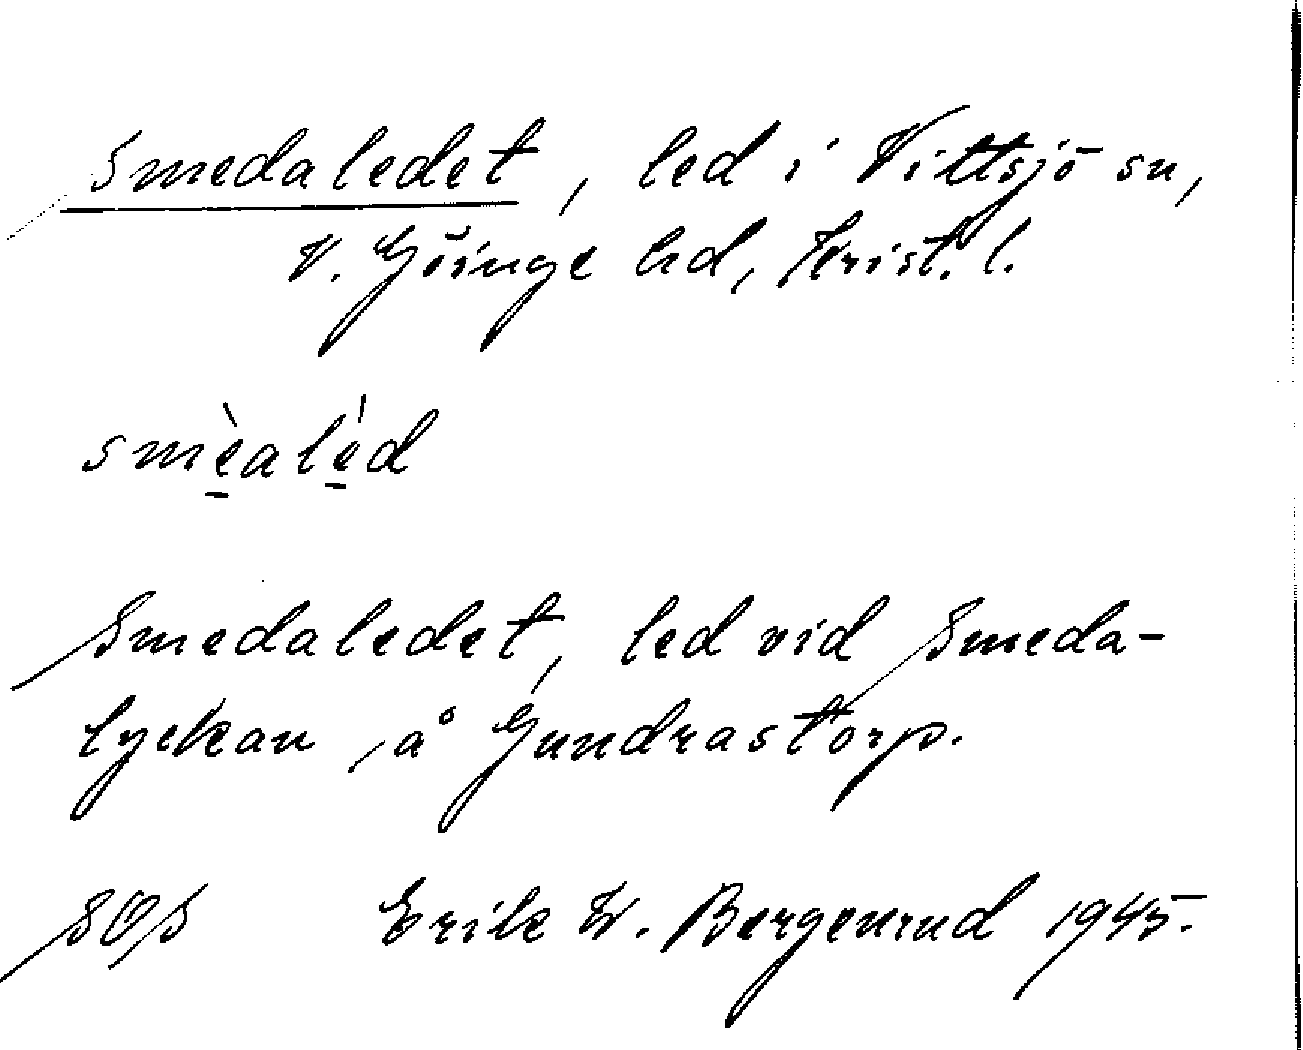 Smedaledet, led i Vittsjö sn,
V. Göinge hd, Krist. l.
smèalèd
Smedaledet, led vid Smeda-
lyckan, å Gundrastorp.
SOS Erik W. Bergenrud 1945.